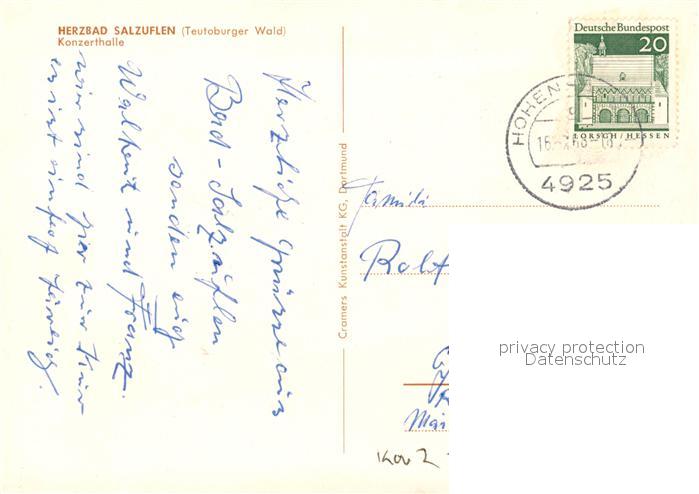 HERZBAD SALZUFLEN (Teutoburger Wald)
Konzerthalle
Herzliche Grüsse aus
Bad-Salzuflen
senden euch
Walheit und Franz.
wir sind hier zur Kur
es ist einfach herrlich!
Cramers Kunstanstalt KG, Dortmund
Deutsche Bundespost
20
LORSCH / HESSEN
HOHEN
4925
Famili
Rolf
Mai
Kov 2
privacy protection
Datenschutz